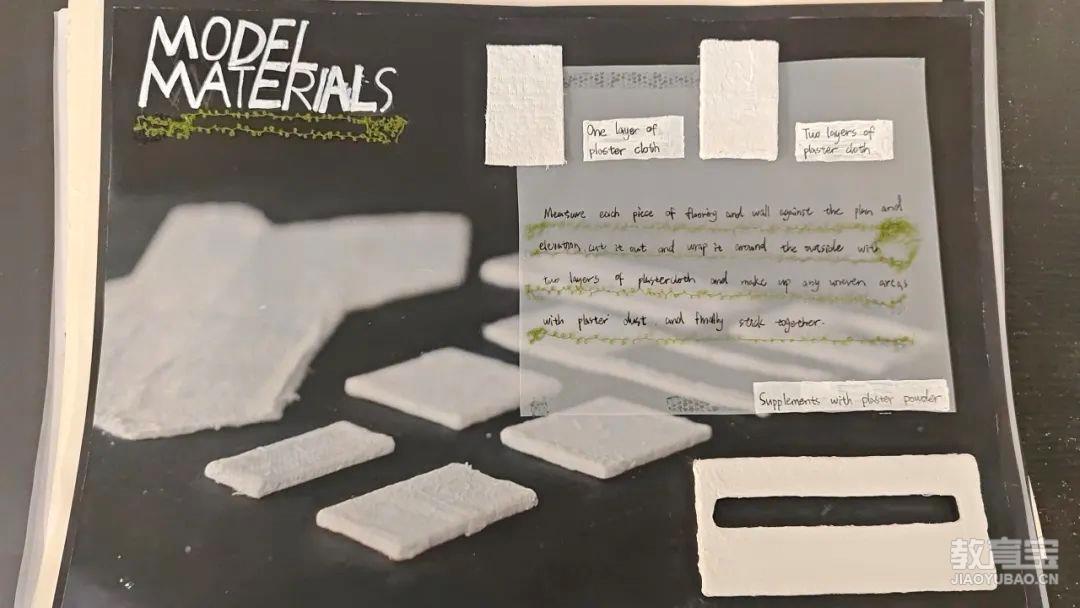 MODEL
MATERIALS
One layer of
plaster cloth
Two layers of
plaster cloth
Measure each piece of flooring and wall against the plan and
elevation, cut it out and wrap it around the outside with
two layers of plastercloth and make up any uneven areas
with plaster dust, and finally stick together.
Supplements with plaster powder
教育宝
JIAOYUBAO.CN